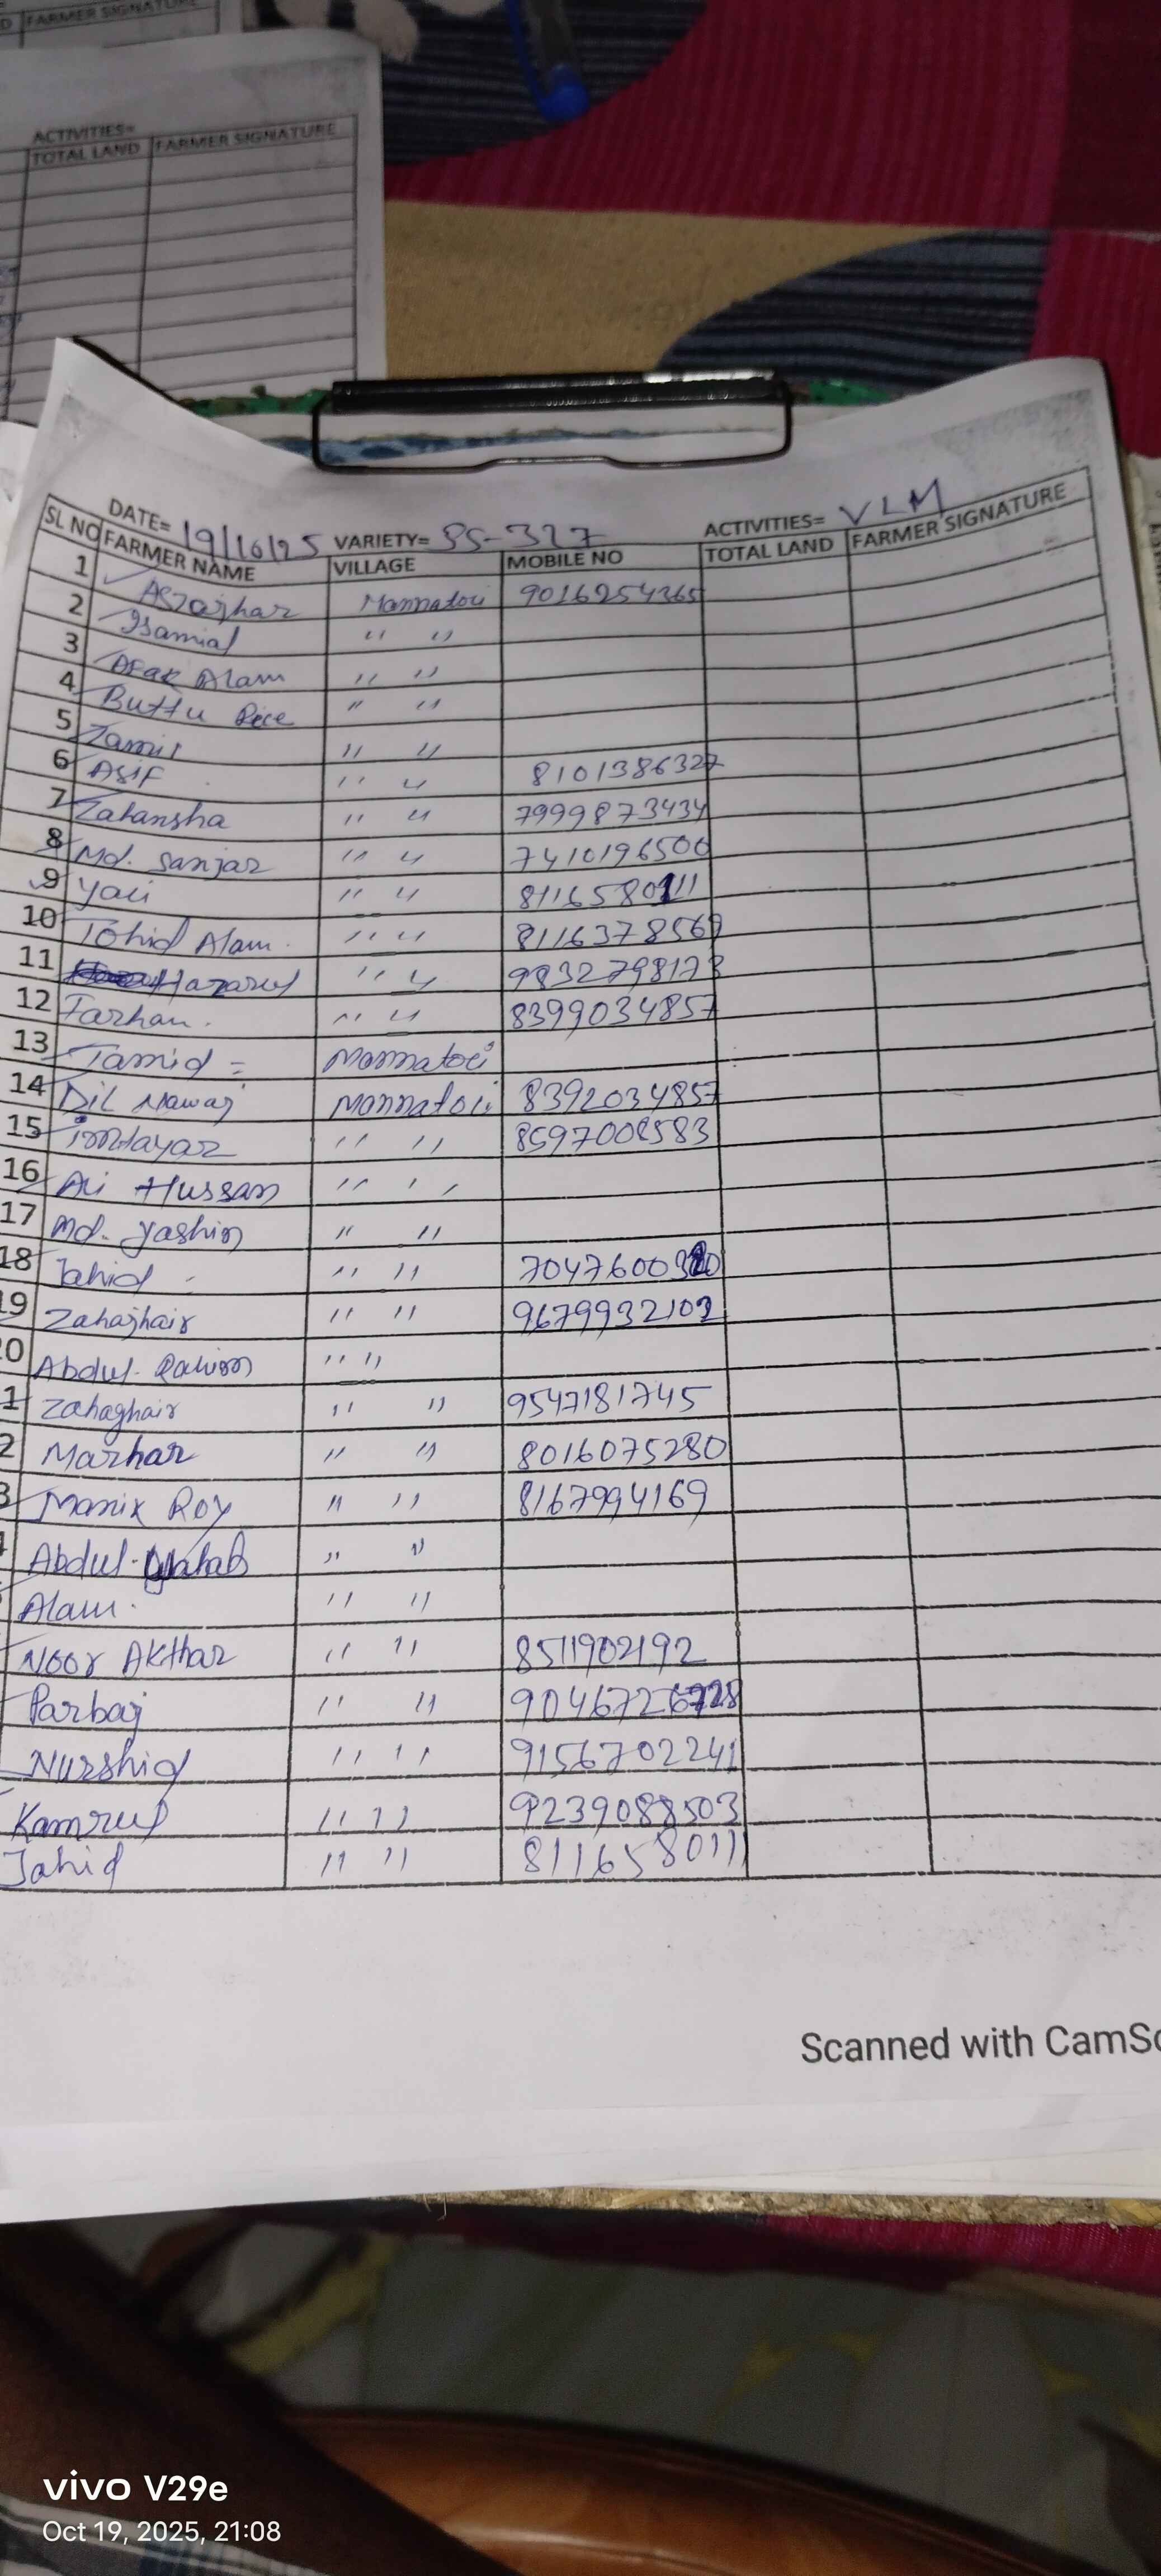 FARMER SIGNATURE
ACTIVITIES=
TOTAL LAND FARMER SIGNATURE
DATE= 19/10/25 VARIETY= SS-327 ACTIVITIES= VLM
SL NO FARMER NAME VILLAGE MOBILE NO TOTAL LAND FARMER SIGNATURE
1 Aszajhar Mannatoli 9016254365
2 Isamial " "
3 Afak Alam " "
4 Buttu " "
5 Jamil " "
6 Asif " " 8101386327
7 Zahansha " " 7999873434
8 Md. Sanjar " " 7410196500
9 Yali " " 8116580111
10 Tohid Alam. " " 8116378569
11 Hazarul " " 9832798173
12 Farhan. " " 8399034857
13 Jamid = Mannatoli
14 Dil Nawaj Mannatoli 8392034857
15 Imtayaz " " 8597008583
16 Ali Hussan " "
17 Md. Yashin " "
18 Jahid - " " 7047600320
19 Zahajhair " " 9679932102
0 Abdul. Rahim " "
1 Zahaghair " " 9547181745
2 Mazhar " " 8016075280
3 Manik Roy " " 8167994169
Abdul. Wahab " "
Alam. " "
Noor Akthar " " 8511902192
Parbaj " " 9046726728
Nurshid " " 9156702241
Kamrul " " 9239088503
Jahid " " 8116580111
Scanned with CamSc
vivo V29e
Oct 19, 2025, 21:08